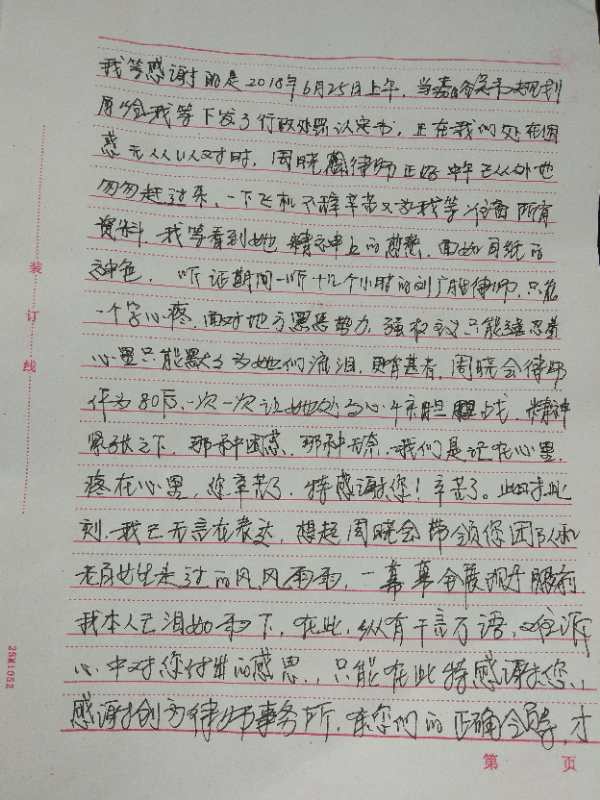 我等感谢的是2018年6月25日上午，当
局给我等下发了行政处罚认定书，正在我们处在困
惑无人以对时，周晓 律师正好中午已从外地
匆匆赶过来，一下飞机不辞辛苦又为我等 所有
资料，我等看到她 精神上的 ，面如白纸的
神色， 听证期间一听十几个小时的刘 律师，只能
一个字心疼，面对地方黑恶势力，强 只能 忍着
心里只能默々为她们流泪， 甚者，周晓会律师
作为80后，一次一次让她处与心 胆 战，精神
紧张之下，那种困惑，那种无奈，我们是记在心里，
疼在心里，您辛苦了，特感谢您！辛苦了。此时此
刻，我已无言在表达，想起周晓会带领您团队和
老百姓走过的风风雨雨，一幕幕会展现于眼前
我本人已泪如雨下，在此，纵有千言万语，难诉
心中对您付出的感恩，，只能在此特感谢您，，
感谢创为律师事务所，在您们的正确 ，才
装
订
线
2SM1052
第 页